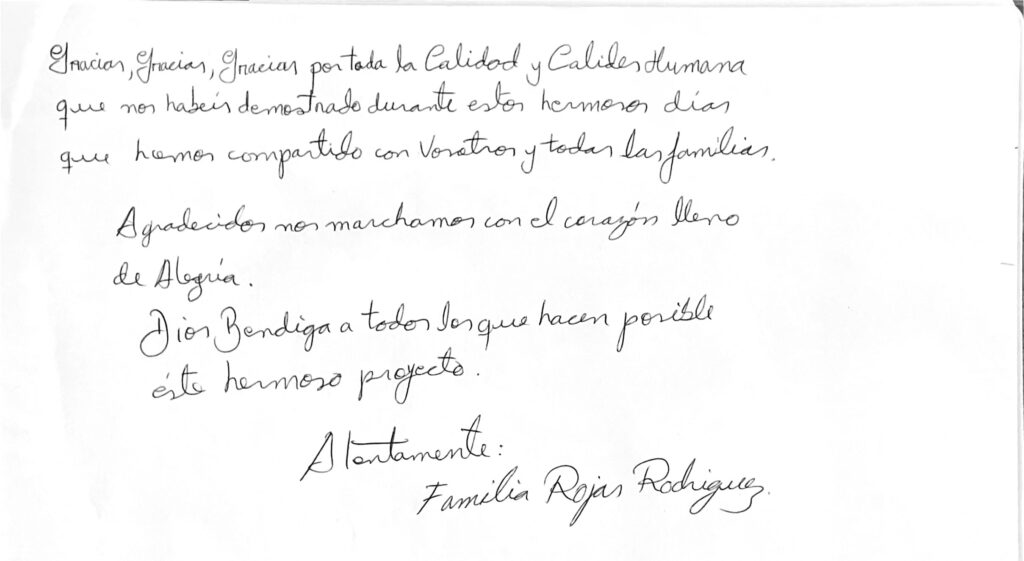 Gracias, Gracias, Gracias por toda la Calidad y Calides Humana
que nos habeis demostrado durante estos hermosos días
que hemos compartido con Vosotros y todas las familias.
Agradecidos nos marchamos con el corazón lleno
de Alegría.
Dios Bendiga a todos los que hacen posible
éste hermoso proyecto.
Atentamente:
Familia Rojas Rodriguez.